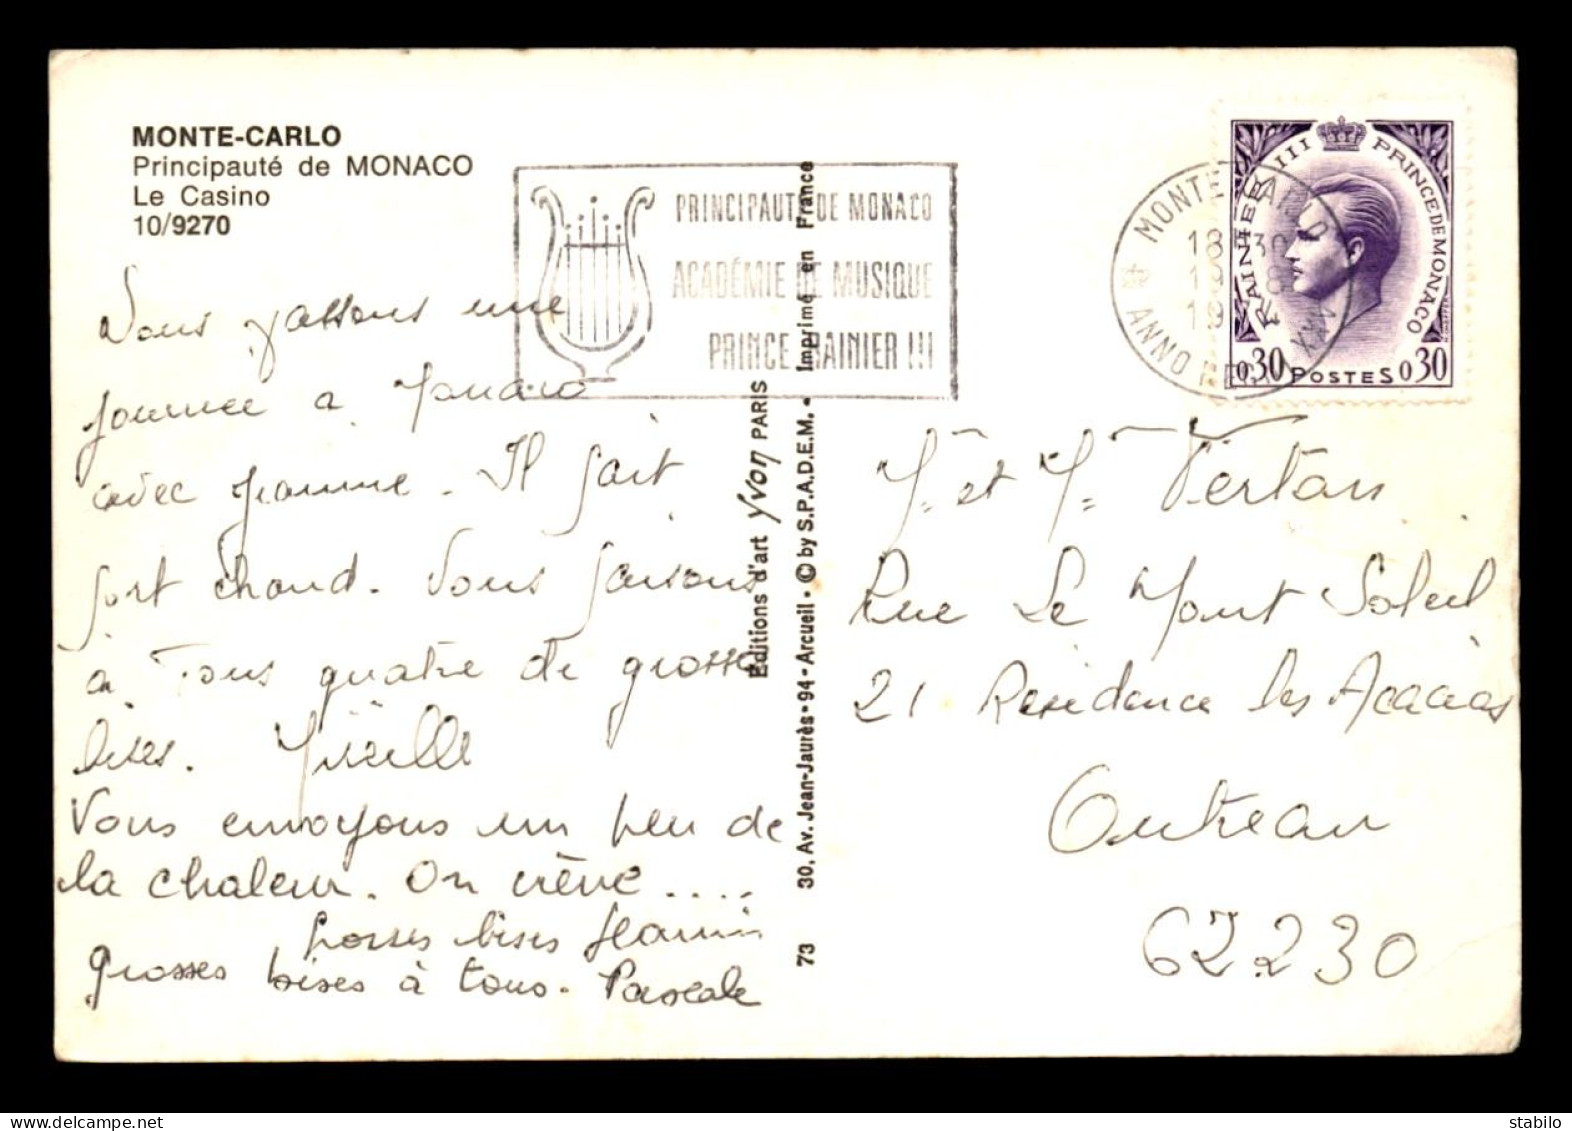 MONTE-CARLO
Principauté de MONACO
Le Casino
10/9270
PRINCIPAUTÉ DE MONACO
ACADÉMIE DE MUSIQUE
PRINCE RAINIER III
MONTE-CARLO
18 H 30
ANNO
RAINIER III PRINCE DE MONACO
0.30 POSTES 0.30
Nous passons une
journée a Monaco
avec Jeanne. Il fait
fort chaud. Nous faisons
à Tous quatre de grosses
bises. Mireille
Vous envoyons un peu de
la chaleur. On crève ....
Grosses bises Jeannin
grosses bises à tous. Pascale
Editions d'art Yvon PARIS
73 30, Av. Jean-Jaurès - 94 - Arcueil - © by S.P.A.D.E.M. - Imprimé en France
Mr et Me Vertan
Rue Le Mont Soleil
21 Residence les Acacias
Outreau
62.230
stabilo - www.delcampe.net